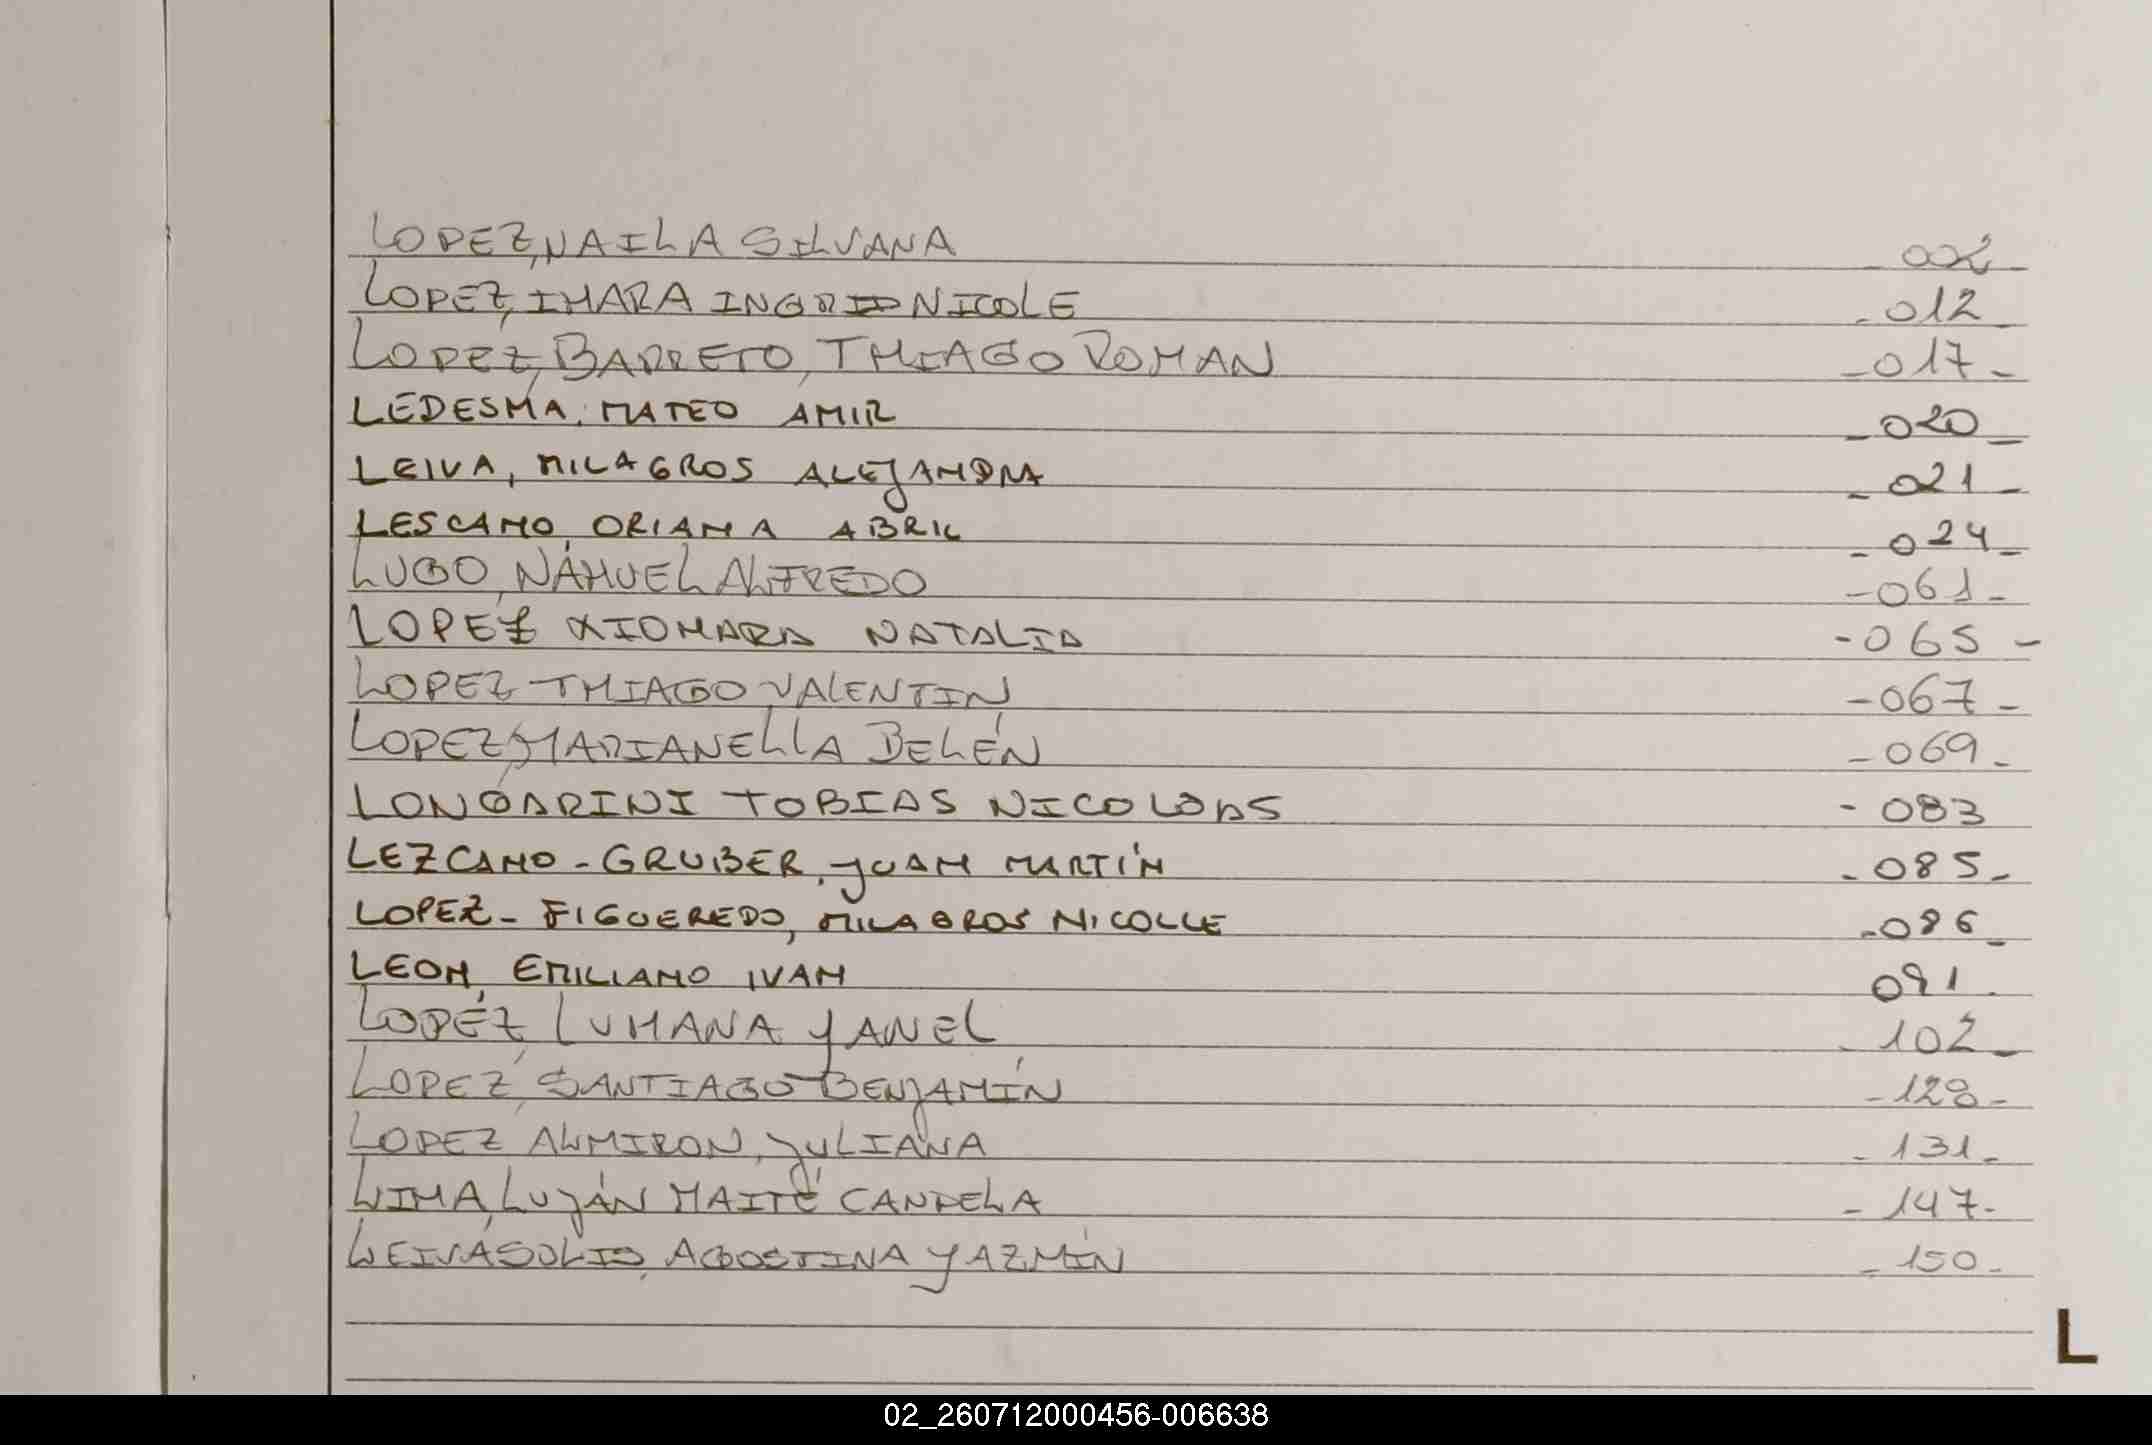 LOPEZ, NAILA SILVANA 002-
LOPEZ, IHARA INGRID NICOLE -012-
LOPEZ, BARRETO, THIAGO ROMAN -017-
LEDESMA, MATEO AMIR -020-
LEIVA, MILAGROS ALEJANDRA -021-
LESCANO, ORIANA ABRIL -024-
LUGO, NAHUEL ALFREDO -061-
LOPEZ XIOMARA NATALIA -065-
LOPEZ THIAGO VALENTIN -067-
LOPEZ, MARIANELLA BELÉN -069-
LONGARINI TOBIAS NICOLAS -083
LEZCANO-GRUBER, JUAN MARTÍN -085-
LOPEZ-FIGUEREDO, MILAGROS NICOLLE -086-
LEON, EMILIANO IVAN 091-
LOPEZ, LUHANA YANEL -102-
LOPEZ, SANTIAGO BENJAMÍN -128-
LOPEZ ALMIRON, JULIANA -131-
LIMA, LUJÁN MAITÉ CANDELA -147-
LEIVA SOLIS, AGOSTINA YAZMÍN -150-
L
02_260712000456-006638